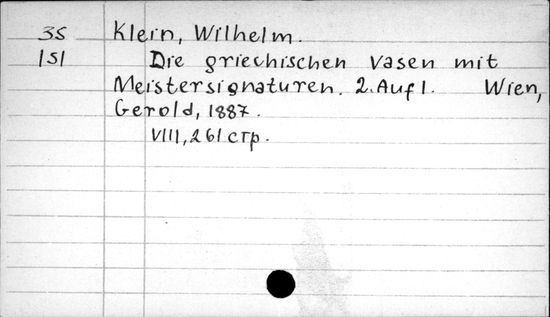 35 Klein, Wilhelm.
151 Die griechischen Vasen mit
Meistersignaturen. 2. Aufl. Wien,
Gerold, 1887.
VIII, 261 стр.